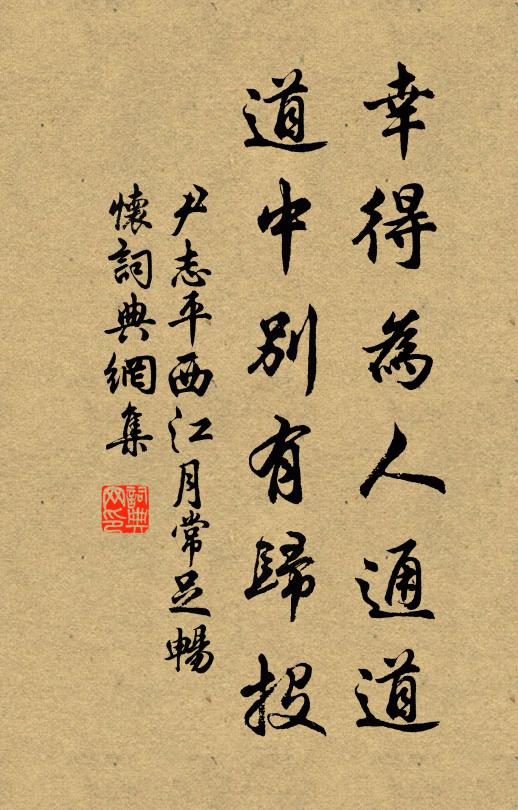 幸得為人通道
道中別有歸投
尹志平西江月常足暢
懷詞典網集
詞典
网印